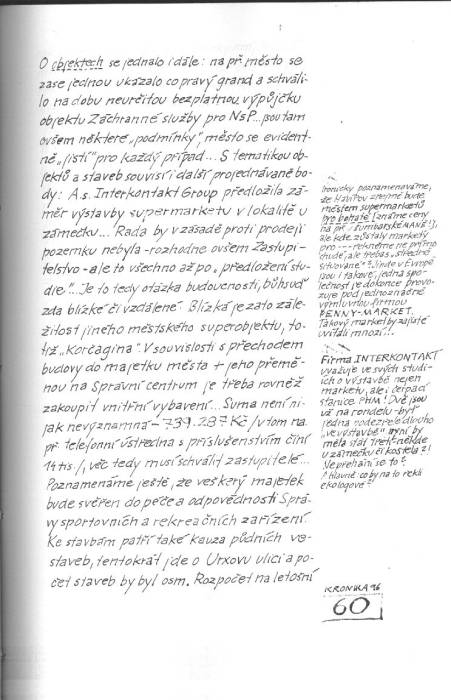 O objektech se jednalo i dále: na př. město se
zase jednou ukázalo co pravý grand a schváli-
lo na dobu neurčitou bezplatnou výpůjčku
objektu Záchranné služby pro NsP... jsou tam
ovšem některé „podmínky", město se evident-
ně „jistí" pro každý případ... S tematikou ob-
jektů a staveb souvisí i další projednávané bo-
dy: A.s. Interkontakt Group předložila zá-
měr výstavby supermarketu v lokalitě u
zámečku... Rada by v zásadě proti prodeji
pozemku nebyla - rozhodne ovšem Zastupi-
telstvo - ale to všechno až po „předložení stu-
die"... Je to tedy otázka budoucnosti, bůhsuď
zda blízké či vzdálené. Blízká je zato zále-
žitost jiného městského superobjektu, to-
tiž „Korčagina". V souvislosti s přechodem
budovy do majetku města + jeho přemě-
nou na Správní centrum je třeba rovněž
zakoupit vnitřní vybavení... Suma není ni-
jak nevýznamná - 739.287 Kč /v tom na
př. telefonní ústředna s příslušenstvím činí
14 tis/, věc tedy musí schválit zastupitelé...
Poznamenáme ještě, že veškerý majetek
bude svěřen do péče a odpovědnosti Sprá-
vy sportovních a rekreačních zařízení.
Ke stavbám patří také kauza půdních ve-
staveb, tentokrát jde o Urxovu ulici a po-
čet staveb by byl osm. Rozpočet na letošní
Ironicky poznamenáváme,
že Havířov zřejmě bude
městem supermarketů
pro bohaté (známe ceny
na př.
ale kde zůstaly markety
pro --- řekněme ne přímo
chudé, ale třebas „středně
situované"? Jinde v Evropě
jsou i takové, jedna spo-
lečnost je dokonce provo-
zuje pod jednoznačně
výmluvnou firmou
PENNY-MARKET.
Takový market by zajisté
uvítali mnozí!..
Firma INTERKONTAKT
uvažuje ve svých studi-
ích o výstavbě nejen
marketu, ale i čerpací
stanice PHM! Dvě jsou
už na rondelu - byť
jedna podezřele dlouho
„ve výstavbě" nyní by
měla stát třetí někde
u zámečku či kostela?!
Nepřehání se to?
/Hlavně: co by na to řekli
ekologové?/
KRONIKA 96
60